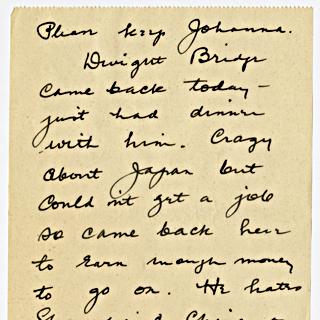 Please keep Johanna.
Dwight Bridge
came back today -
just had dinner
with him. Crazy
about Japan but
could n't get a job
so came back here
to earn enough money
to go on. He hates